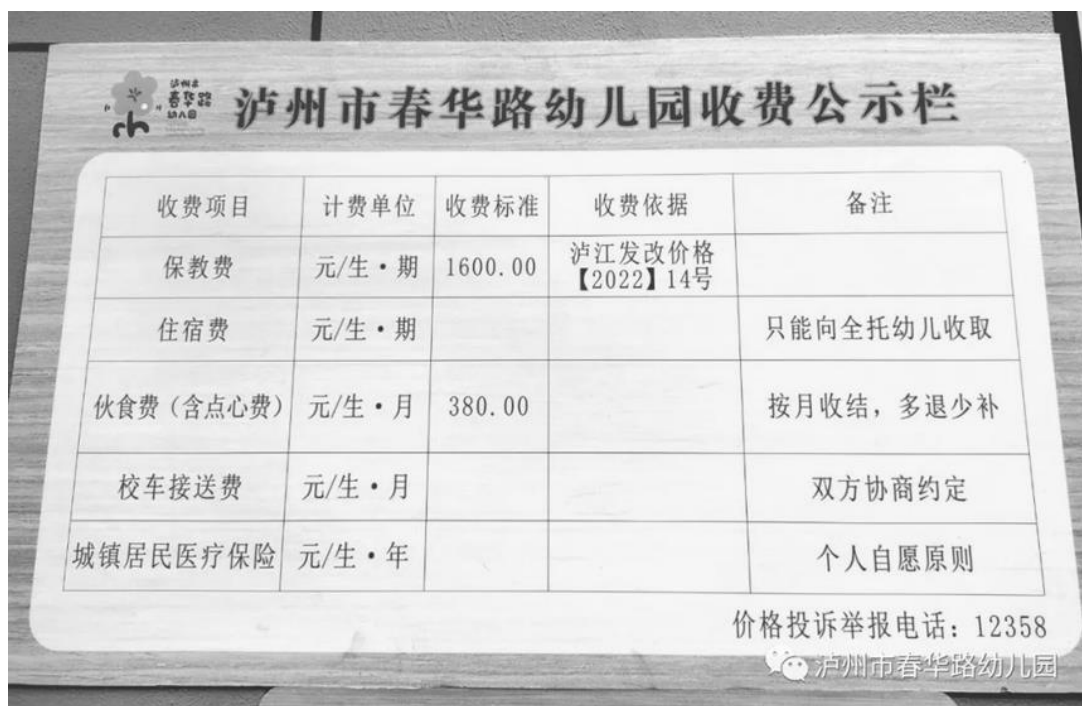 泸州市
春华路
幼儿园
泸州市春华路幼儿园收费公示栏
收费项目 计费单位 收费标准 收费依据 备注
保教费 元/生·期 1600.00 泸江发改价格
【2022】14号
住宿费 元/生·期 只能向全托幼儿收取
伙食费（含点心费） 元/生·月 380.00 按月收结，多退少补
校车接送费 元/生·月 双方协商约定
城镇居民医疗保险 元/生·年 个人自愿原则
价格投诉举报电话：12358
泸州市春华路幼儿园